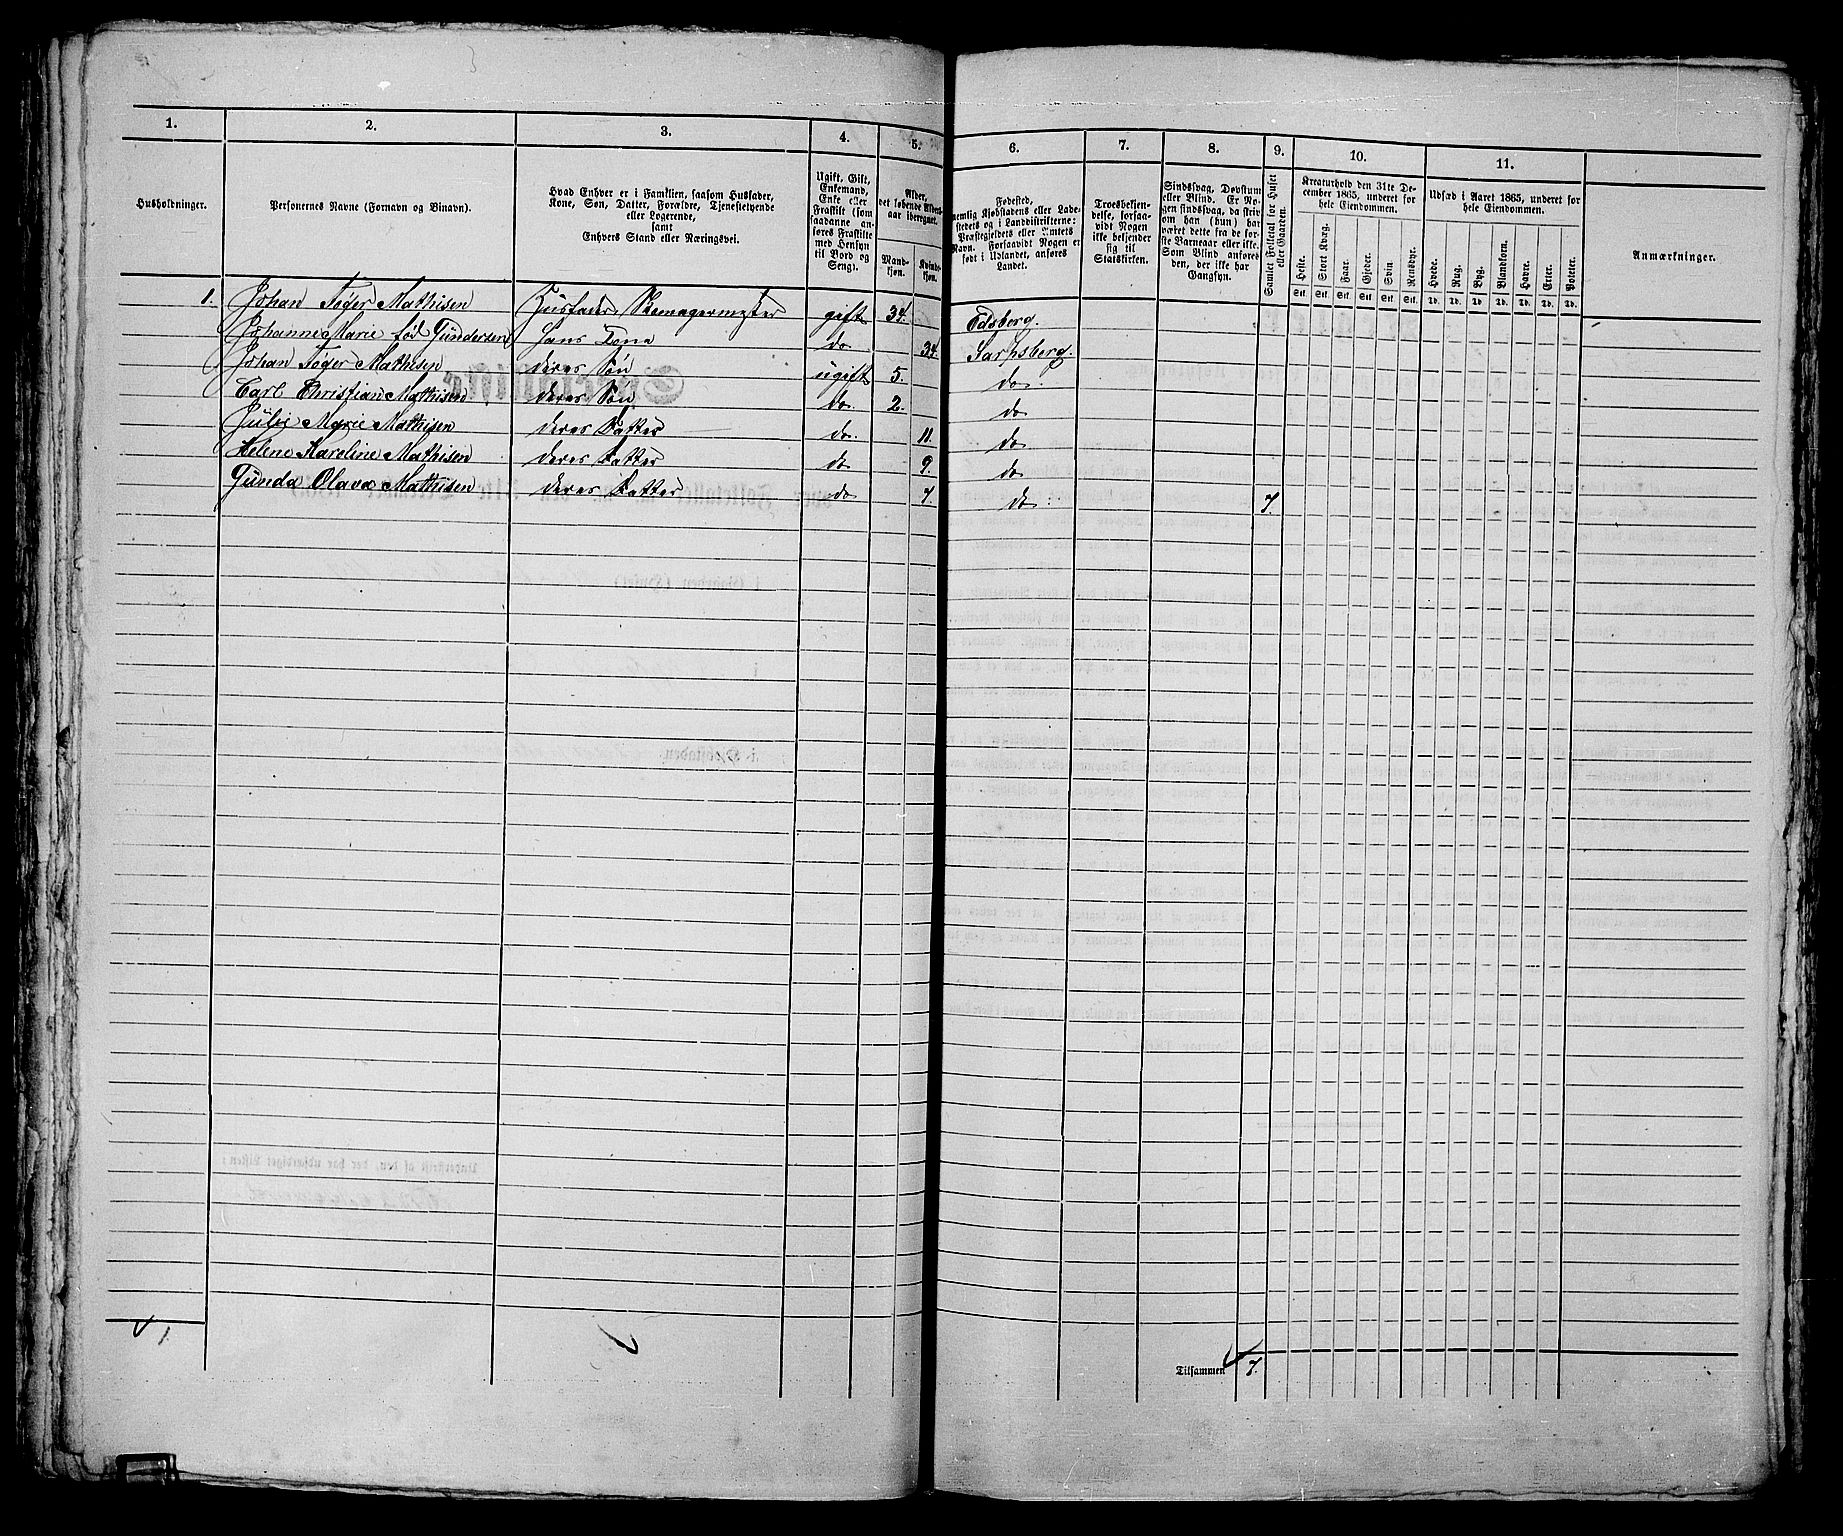 1. 2. 3. 4. 5. 6. 7. 8. 9. 10. 11.
Husholdninger.
Personernes Navne (Fornavn og Binavn).
Hvad Enhver er i Familien, saasom Husfader,
Kone, Søn, Datter, Forældre, Tjenestetyende
eller Logerende,
samt
Enhvers Stand eller Næringsvei.
Ugift, Gift,
Enkemand,
Enke eller
Fraskilt (som
saadanne an-
føres Fraskilte
med Hensyn
til Bord og
Seng).
Alder,
det løbende Alders-
aar iberegnet.
Mand-
kjøn.
Kvinde-
kjøn.
Fødested,
nemlig Kjøbstadens eller Lade-
stedets og i Landdistrikterne:
Præstegjeldets eller Amtets
Navn. Forsaavidt Nogen er
født i Udlandet, anføres
Landet.
Troesbekjen-
delse, forsaa-
vidt Nogen
ikke bekjender
sig til
Statskirken.
Sindssvag, Døvstum
eller Blind. Er No-
gen sindssvag, da skriv
om han (hun) har
været dette fra de før-
ste Barneaar eller ikke.
Som Blind anføres
den, der ikke har
Gangsyn.
Samlet Folketal for Huset
eller Gaarden.
Kreaturhold den 31te De-
cember 1865, underet for
hele Eiendommen.
Heste. Stort Kvæg. Faar. Gjeder. Svin Rensdyr.
Stk. Stk. Stk. Stk. Stk. Stk.
Udsæd i Aaret 1865, underet for
hele Eiendommen.
Hvede. Rug. Byg. Blandkorn. Havre. Erter. Poteter.
Td. Td. Td. Td. Td. Td. Td.
Anmærkninger.
1. Johan Tøger Mathisen Husfader Skomagermester gift 34. Edsberg.
Johanne Marie fød Gundersen Hans Kone do 34. Sarpsborg.
Johan Tøger Mathisen deres Søn ugift 5. do.
Carl Christian Mathisen deres Søn do. 2. do
Julie Marie Mathisen deres Datter do. 11. do
Helene Karoline Mathisen deres Datter do 9. do
Gunda Olava Mathisen deres Datter do 7. do. 7.
1.
Tilsammen 7.